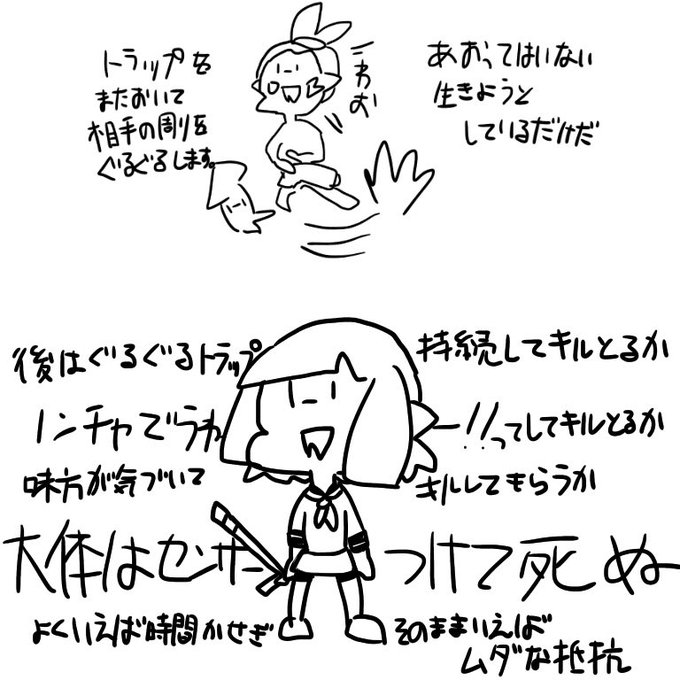 トラップを
またおいて
相手の周りを
ぐるぐるします。
わお
あおってはいない
生きようと
しているだけだ
後はぐるぐるトラップ 持続してキルとるか
ノンチャでうわ ー!!ってしてキルとるか
味方が気づいて キルしてもらうか
大体はセンサー つけて死ぬ
よくいえば時間かせぎ そのままいえば
ムダな抵抗